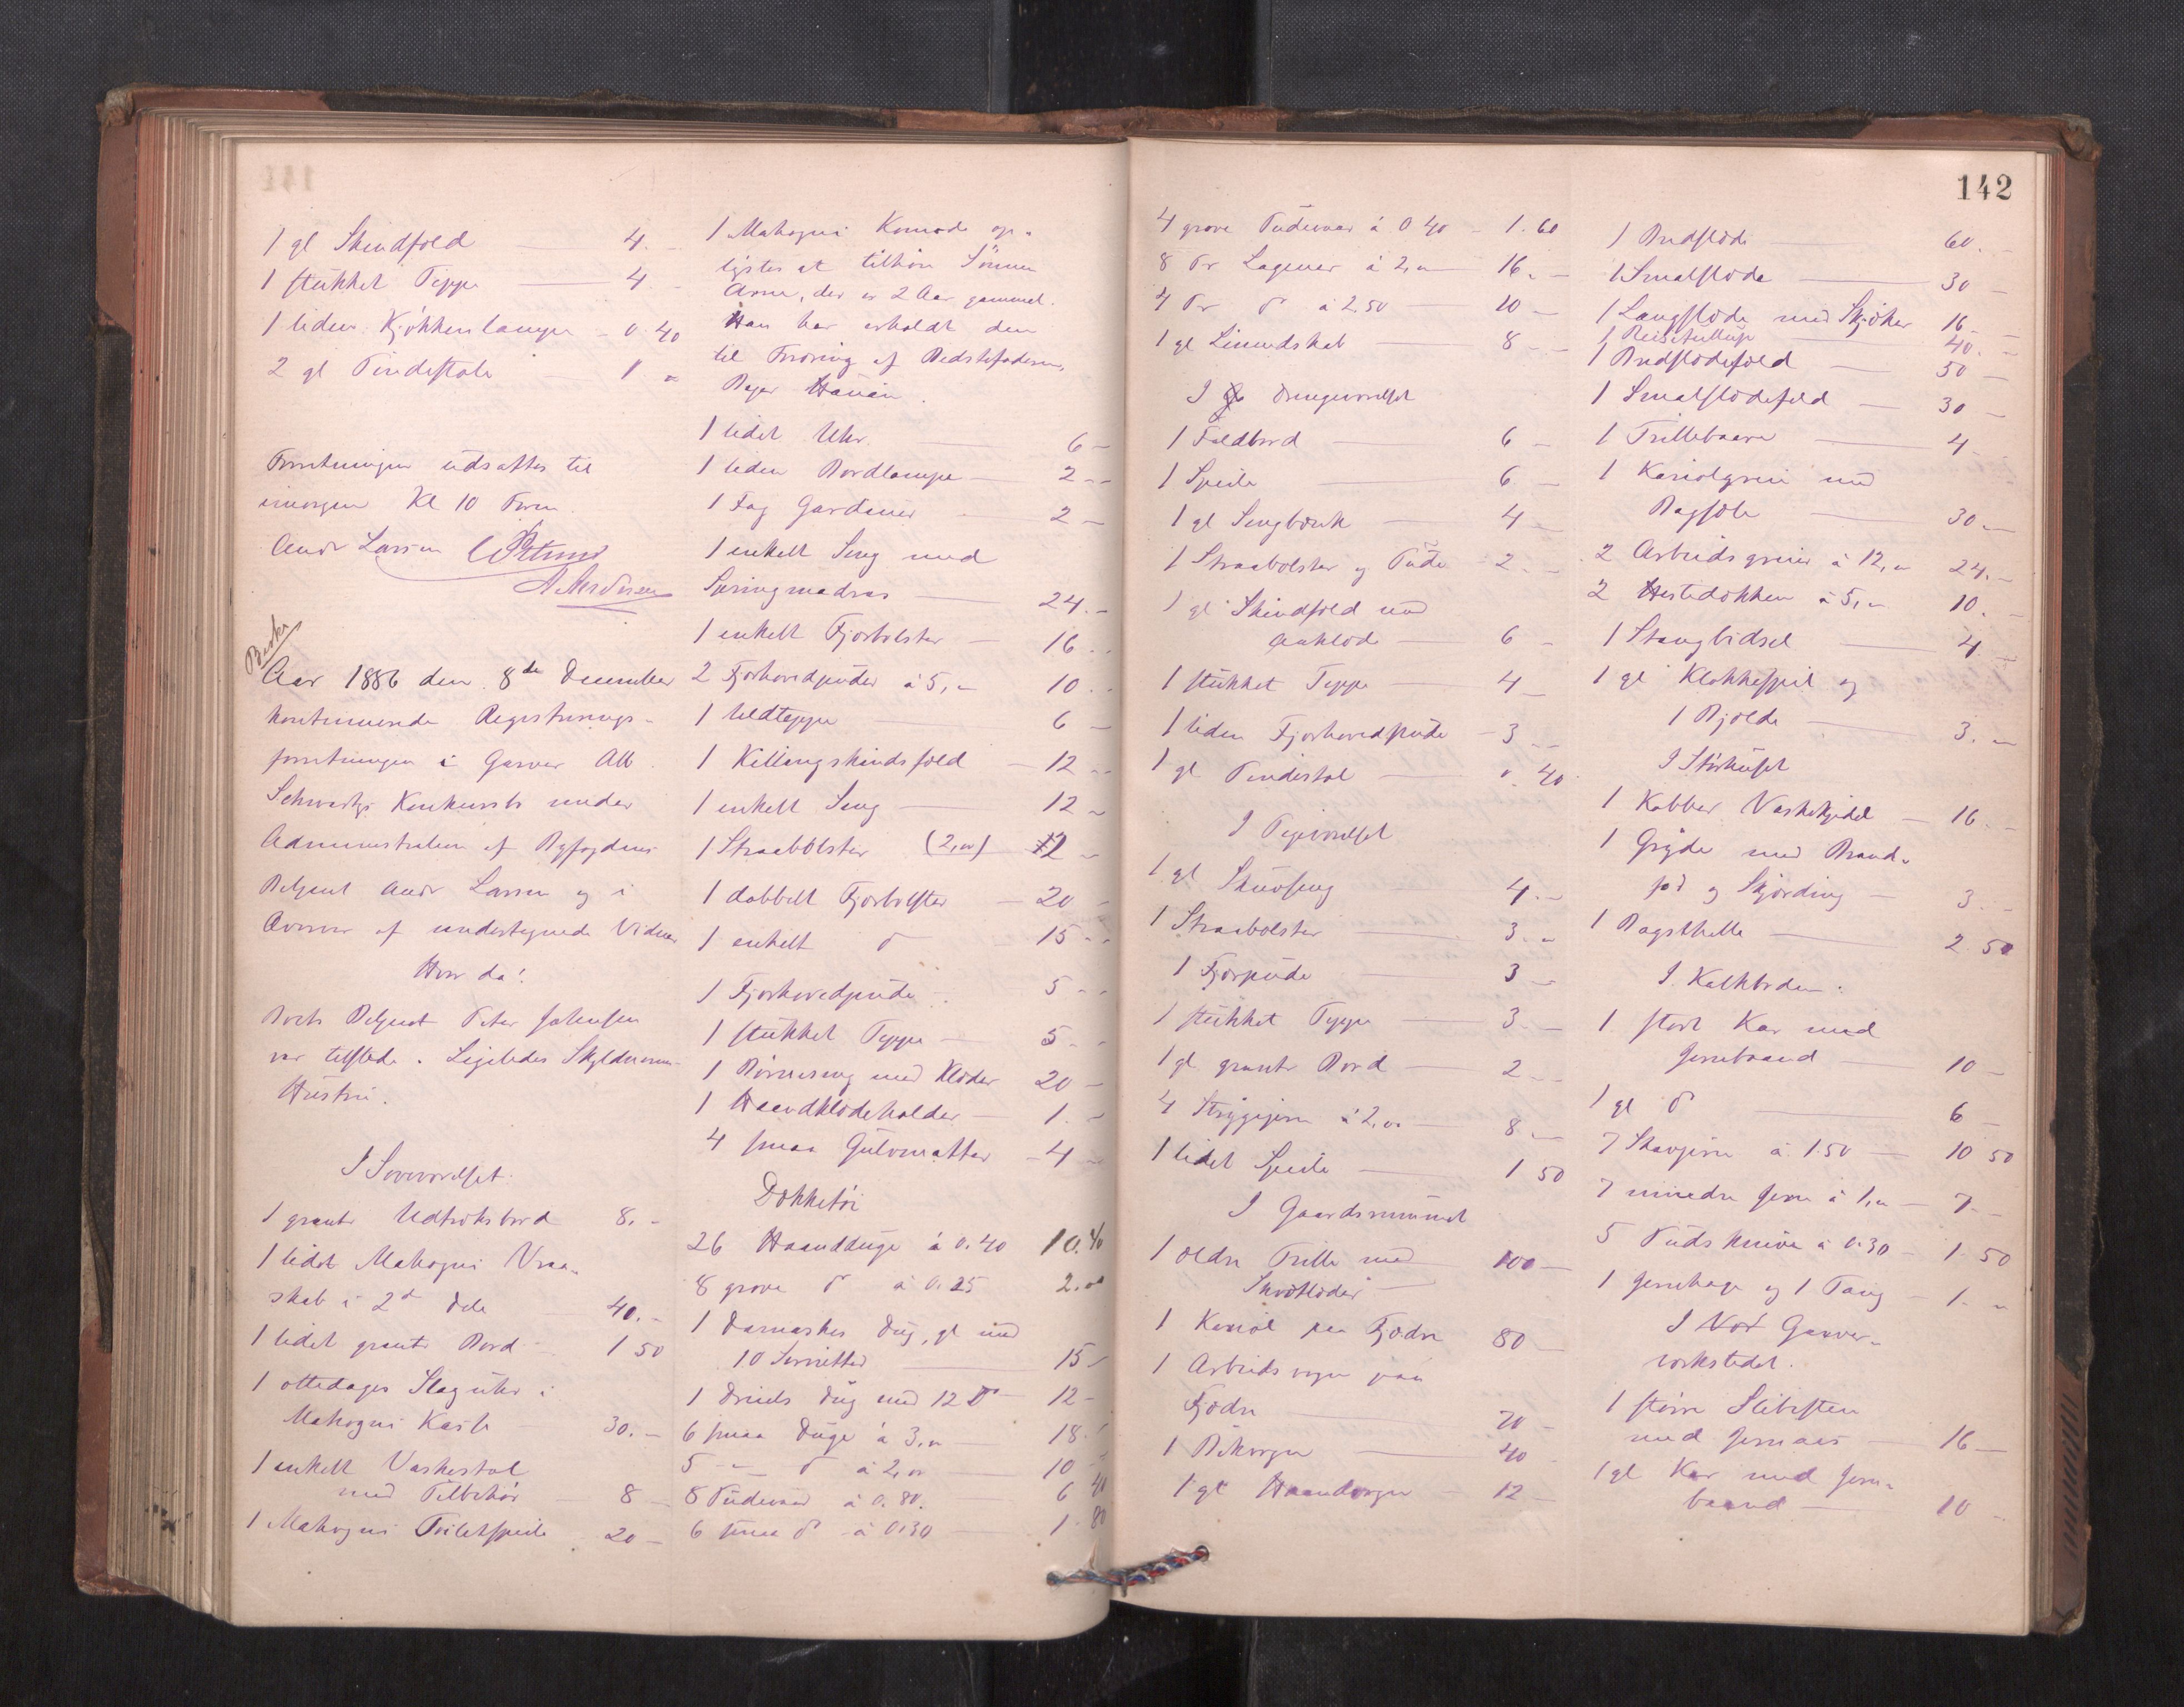 1 gl Skindfeld — 4. -
1 stukket Teppe — 4 -
1 liden Kjøkkenlampe - 0.40
2 gl Pindestole - 1 "
Forretningen udsattes til
imorgen Kl 10 Form.
Andr Larsen
A. Andersen
Aar 1886 den 8de December
kontinuerede Registrerings-
forretningen i Garver Alb.
Schwartz Konkursbo under
Administration af Byfogdens
Betjent Andr Larsen og i
Overvær af undertegnede Vidner
Hvor da!
Boets Betjent Peter Johnsen
var tilstede. Ligeledes Skyldnerens
Hustru.
I Soveværelset.
1 grønt Udtræksbord 8. -
1 lidet Mahogni Vraa-
skab i 2de Dele - 40. -
1 lidet grønt Bord - 1 50
1 ottedages Slaguhr i
Mahogni Kasse 30. -
1 enkelt Vaskestol
med Tilbehør - 8 -
1 Mahogni Toiletspeile 20 -
1 Mahogni Komode op-
lystes at tilhøre Sønnen
Arne, der er 2 Aar gammel.
Han har erholdt den
til Foræring af Bedstefaderen,
Bager
1 lidet Uhr. — 6 -
1 liden Bordlampe — 2 - -
1 Fag Gardiner - 2 -
1 enkelt Seng med
Springmadras — 24. -
1 enkelt Fjærbolster — 16 . .
2 Fjærhovedpuder á 5," 10 . .
1 Uldteppe — 6 -
1 Killingskindsfeld - 12 - -
1 enkelt Seng — 12 -
1 Straabolster (2,00) 2 -
1 dobbelt Fjærbolster - 20 -
1 enkelt do 15 - -
1 Fjærhovedpude - 5 - -
1 stukket Teppe — 5 - -
1 Børneseng med Klæder 20 -
1 Haandklædeholder — 1. -
4 smaa Gulvmatter - 4 -
Dækketøi
26 Haandduge á 0.40 10.40
8 grove do á 0.25 2.00
1 Damaskes Dug, gl med
10 Servietter — 15 -
1 Dreiels Dug med 12 do 12 -
6 smaa Duge á 3," — 18 - -
5 - " - do á 2,00 10 - -
8 Pudevar á 0.80. — 6 40
6 smaa do á 0.30 1.80
142
4 grove Pudevar á 0 40 - 1.60
8 Pr Lagener á 2," — 16. -
4 Pr do á 2.50 10 -
1 gl Linnedskab — 8 - -
I Drengeværelset
1 Foldbord — 6 -
1 Speile — 6 -
1 gl Sengbænk — 4 -
1 Straabolster og Pude - 2 - -
1 gl Skindfeld med
Aaklæde — 6 -
1 stukket Teppe — 4 -
1 liden Fjærhovedpude - 3 - -
1 gl Pindestol — 0.40
I Pigeværelset
1 gl Skuvseng 4. -
1 Straabolster — 3. "
1 Fjærpude — 3 -
1 stukket Teppe — 3 -
1 gl grønt Bord — 2 - -
4 Strygejern á 2,00 — 8. -
1 lidet Speile — 1 50
I Gaardsrummet
1 ældre Trille med 100 -
1 Kariol paa Fjædre 80 -
1 Arbeidsvogn paa
Fjædre — 70 -
1 — 40 -
1 gl Haandvogn - 12 -
1 Bredslæde — 60. -
1 Smalslæde — 30 -
1 Langslæde med Skjæker 16 -
1 — 40. -
1 Bredslædefeld — 50 -
1 Smalslædefeld — 30 -
1 Trillebaare — 4 -
1 Kariolgreie med
Bagsæle — 30 -
2 Arbeidsgreier á 12," 24. -
2 Hestedækken á 5," 10. -
1 Stangbidsel — 4 -
1 gl Klokkespil og
1 Bjælde — 3. -
I Størhuset
1 Kobber Vaskekjedel — 16. -
1 Gryde med Brand-
jod og Skjørding — 3. -
1 Bagsthelle — 2.50
I Kalkboden.
1 stort Kar med
Jernbaand — 10 -
1 gl do — 6 -
7 Skavjern á 1.50 — 10 50
7 mindre Jern á 1," — 7. -
5 Pudsknive á 0.30 - 1.50
1 Jernhage og 1 Tang - 1. "
I Garver-
værkstedet.
1 større Slibesten
med — 16 -
1 gl Kar med Jern-
baand — 10 -